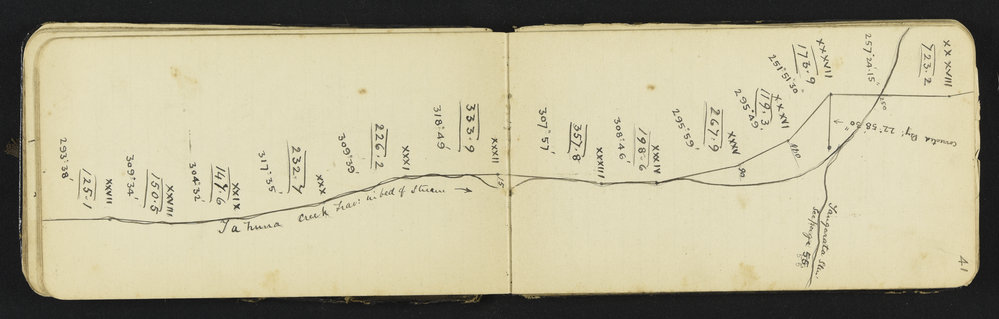 XXVII
125.1
293°38'
XXVIII
150.5
309°34'
XXIX
147.6
304°32'
XXX
232.7
317°35'
XXXI
226.2
309°39'
XXXII
333.9
318°49'
XXXIII
357.8
307°57'
XXXIV
198.6
308°46'
XXXV
267.9
295°59'
XXXVI
119.3
295°49'
XXXVII
173.9
251°51'30"
XXXVIII
723.2
257°24'15"
Tahuna creek trav: in bed of stream
15
90
250
correct Bg. 22°58'30"
See page 56
41